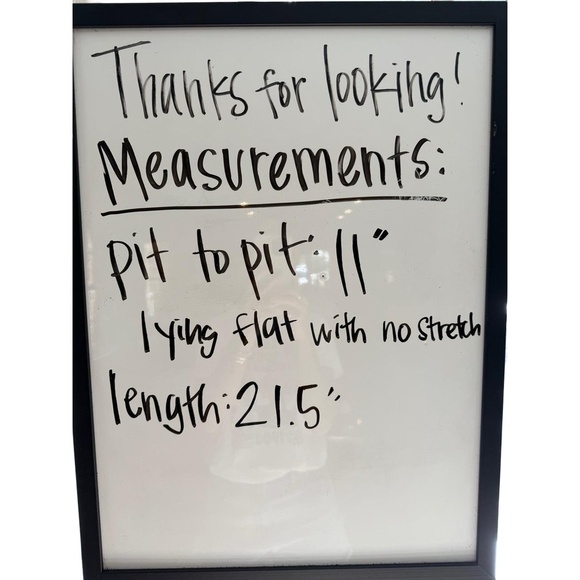 Thanks for looking!
Measurements:
pit to pit: 11"
lying flat with no stretch
length: 21.5"